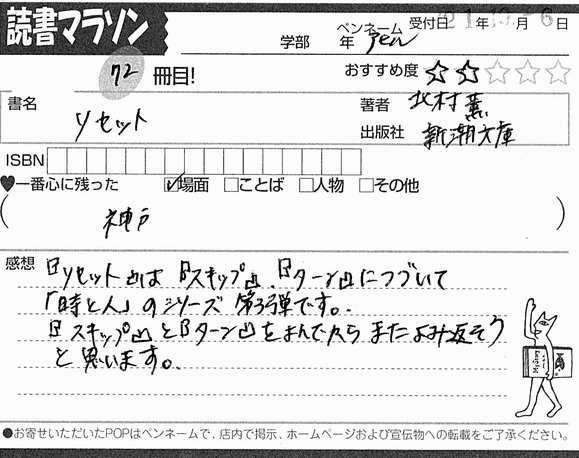 読書マラソン
学部 年 ペンネーム Pen 受付日 21年10月-6日
72 冊目!
おすすめ度 ☆☆☆☆☆
書名 リセット
著者 北村薫
出版社 新潮文庫
ISBN
♥一番心に残った ☑場面 □ことば □人物 □その他
( 神戸 )
感想 『リセット』は『スキップ』、『ターン』につづいて
「時と人」のシリーズ第3弾です。
『スキップ』と『ターン』をよんでからまたよみ返そう
と思います。
●お寄せいただいたPOPはペンネームで、店内で掲示、ホームページおよび宣伝物への転載をご了承ください。